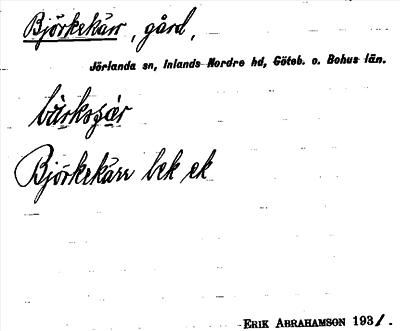 Björkekärr, gård,
Jörlanda sn, Inlands Nordre hd, Göteb. o. Bohus län.
Björkekärr bek ek
ERIK ABRAHAMSON 1931.